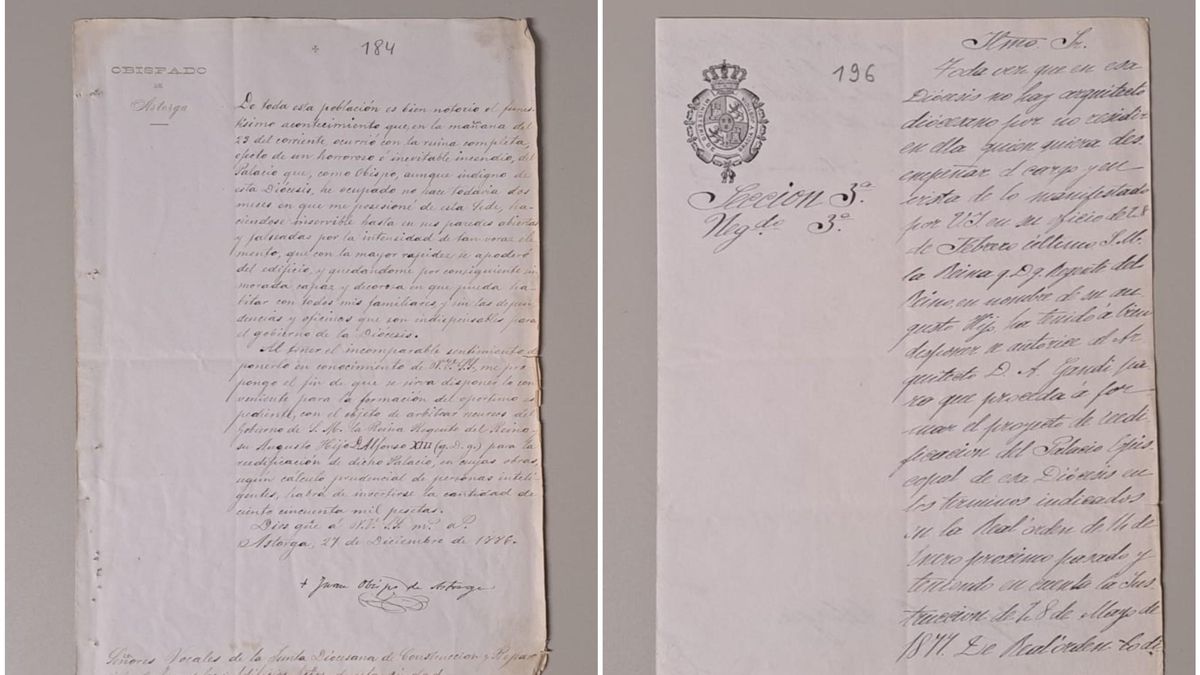 184
OBISPADO
DE
Astorga
De toda esta población es bien notorio el funes-
tísimo acontecimiento que, en la mañana del
23 del corriente, ocurrió con la ruina completa,
efecto de un horroroso é inevitable incendio, del
Palacio que, como Obispo, aunque indigno de
esta Diócesis, he ocupado no hace todavía dos
meses en que me posesioné de esta Sede, ha-
ciéndose inservible hasta en sus paredes abiertas
y falseadas por la intensidad de tan voraz ele-
mento, que con la mayor rapidez se apoderó
del edificio, y quedándome por consiguiente sin
morada capaz y decorosa en que pueda ha-
bitar con todos mis familiares, y sin las depen-
dencias y oficinas que son indispensables para
el gobierno de la Diócesis.
Al tener el incomparable sentimiento de
ponerlo en conocimiento de V.V. S.S., me pro-
pongo el fin de que se sirva disponer lo con-
veniente para la formación del oportuno ex-
pediente, con el objeto de arbitrar recursos del
Gobierno de S. M. la Reina Regente del Reino
su Augusto Hijo D. Alfonso XIII (q. D. g.) para la
reedificación de dicho Palacio, en cuyas obras,
según cálculo prudencial de personas inteli-
gentes, habrá de invertirse la cantidad de
ciento cincuenta mil pesetas.
Dios gue á V.V. S.S. ms. as.
Astorga, 27 de Diciembre de 1886.
+ Juan Obispo de Astorga
Señores Vocales de la Junta Diocesana de Construccion y Repar
196
Seccion 3ª.
Neg.do 3º.
Iltmo. Sr.
Toda vez que en esa
Diócesis no hay arquitecto
diocesano por no residir
en ella quien quiera des-
empeñar el cargo y en
vista de lo manifestado
por V.I. en su oficio de 28
de Febrero último S. M.
la Reina q. D. g. Regente del
Reino, en nombre de su au-
gusto Hijo, ha tenido á bien
disponer se autorice al Ar-
quitecto D. A. Gaudí pa-
ra que proceda á for-
mar el proyecto de reedi-
ficacion del Palacio Epis-
copal de esa Diócesis en
los términos indicados
en la Real órden de 11 de
Enero próximo pasado y
teniendo en cuenta la Ins-
truccion de 28 de Mayo de
1877. De Real órden lo di-